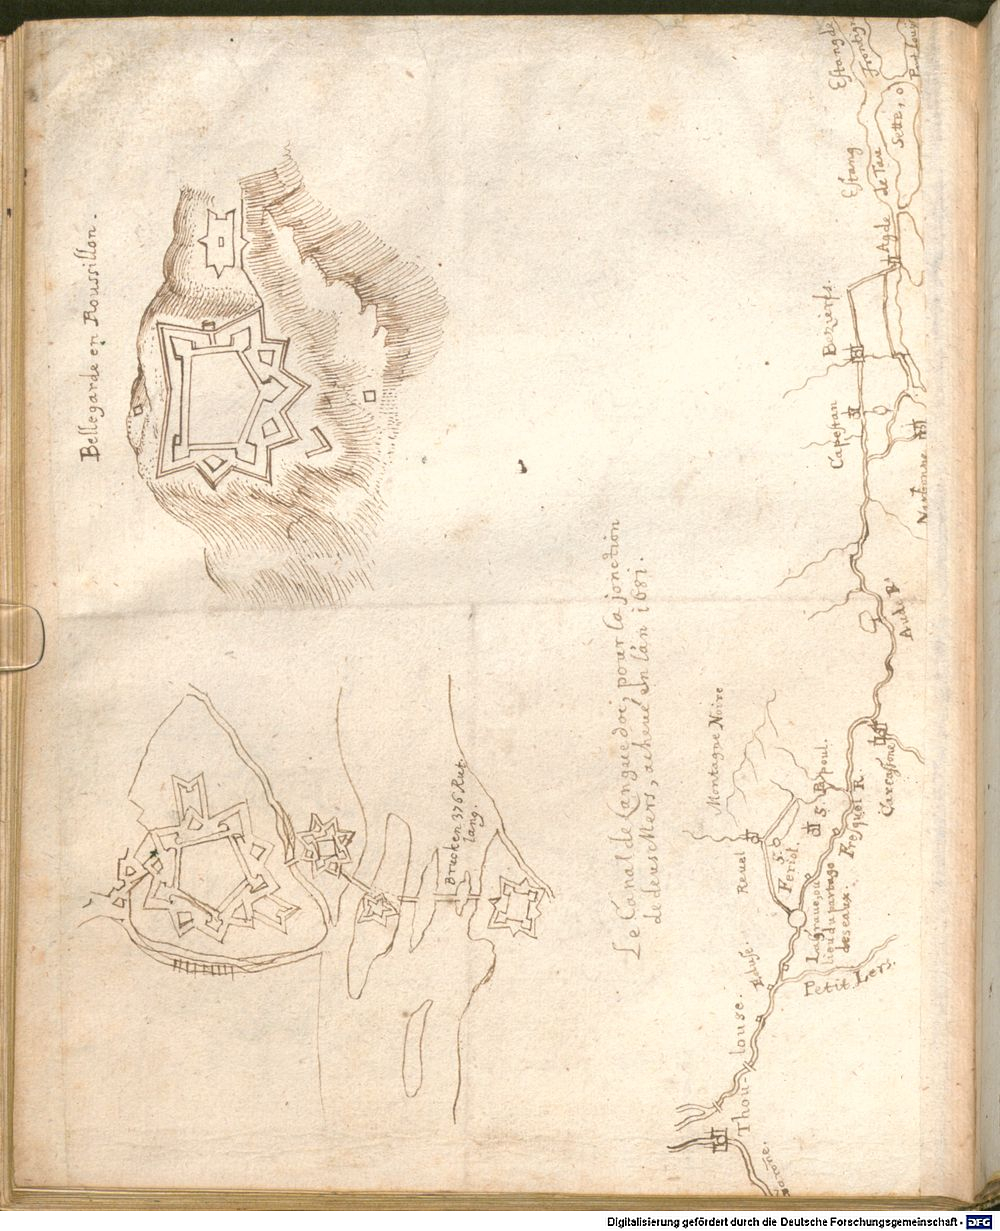 Bellegarde en Roussillon.
Brucken 376 Rut.
lang.
Le Canal de Languedoc, pour la jonction
de deus Mers, acheué en l'an 1681.
Thou-
louse.
Garone.
Ecluse.
Petit Lers.
Reuel
Montagne Noire
S.
Feriol.
Lagraue, ou
lieu du partage
des eaux.
S. Papoul.
Fresquel R.
Carcassone
Aude R.
Narbonne
Capestan
Bezierss.
Agde
Estang
de Tau
Sette,
Estang de
Frontig
Port Louy
Digitalisierung gefördert durch die Deutsche Forschungsgemeinschaft - DFG